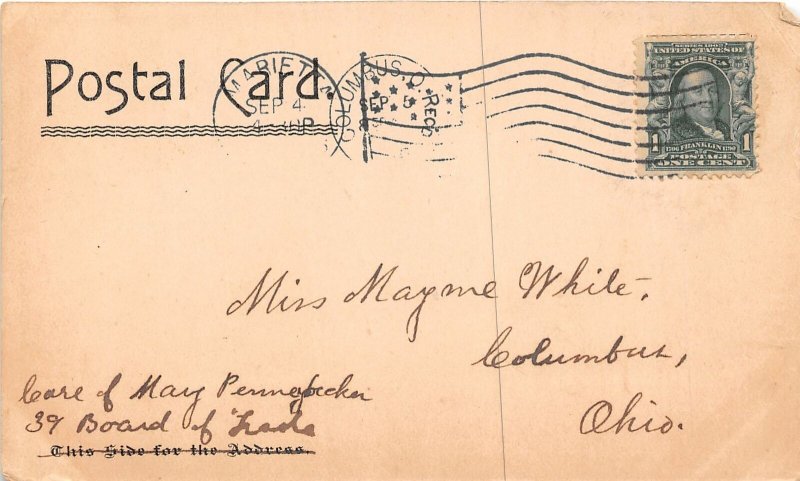 Postal Card.
MARIETTA
SEP 4
COLUMBUS, O.
SEP 5
REC'D
SERIES 1902
UNITED STATES OF
AMERICA
1 1706 FRANKLIN 1790 1
POSTAGE
ONE CENT
Miss Mayme White,
Columbus,
Ohio.
Care of Mary Pennepecker
39 Board of Trade
This Side for the Address.